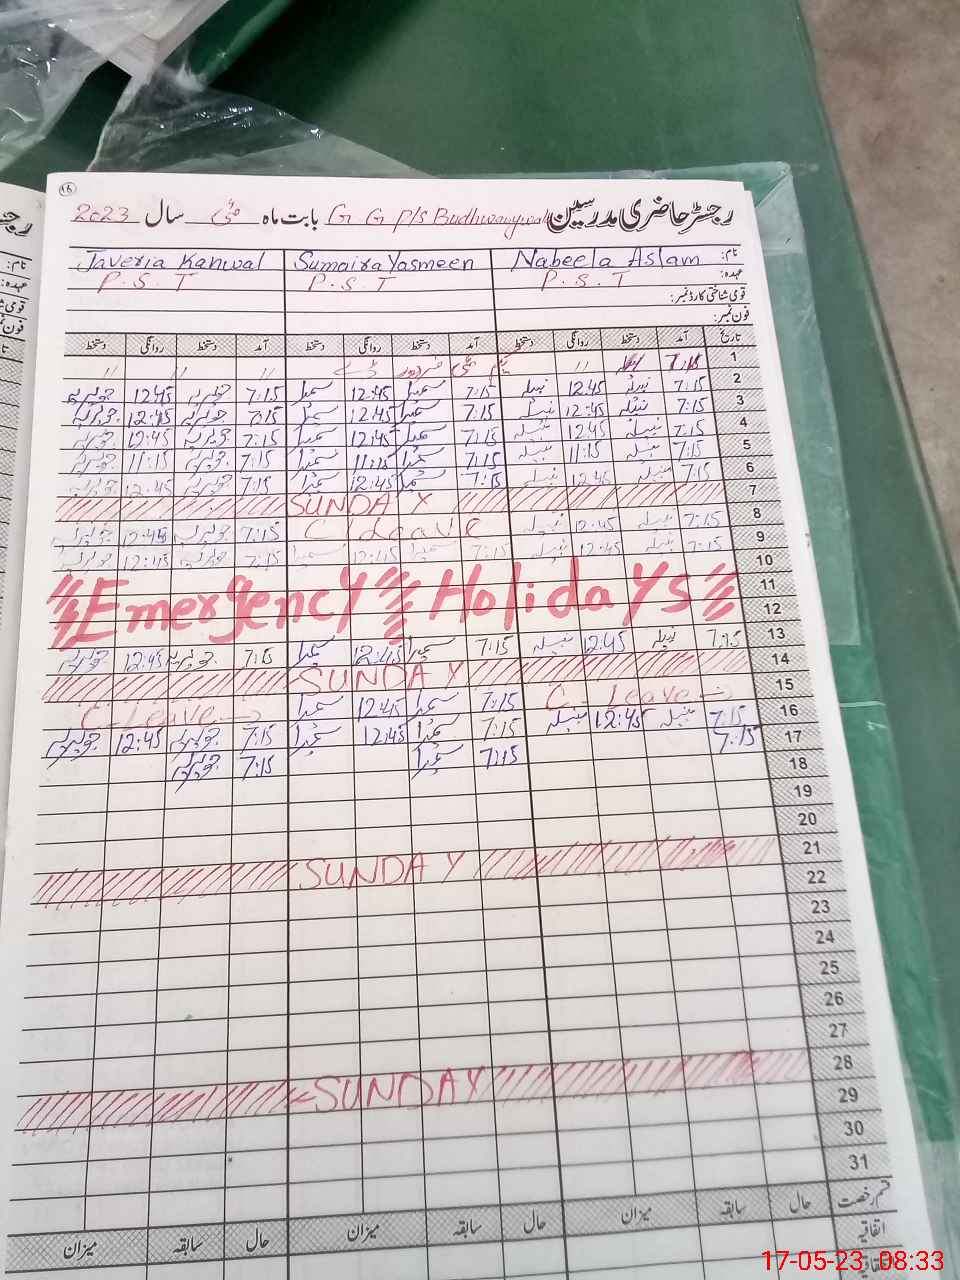 16
رجسٹر حاضری مدرسین G G P/S بابت ماہ مئی سال 2023
نام: Nabeela Aslam Sumaira Yasmeen Javeria Kanwal
عہدہ: P.S.T P.S.T P.S.T
قومی شناختی کارڈ نمبر:
فون نمبر:
تاریخ آمد دستخط روانگی دستخط آمد دستخط روانگی دستخط آمد دستخط روانگی دستخط
1 یکم مئی مزدور ڈے
2 7:15 نبیلہ 12:45 نبیلہ 7:15 سمیرا 12:45 سمیرا 7:15 جویریہ 12:45 جویریہ
3 7:15 نبیلہ 12:45 نبیلہ 7:15 سمیرا 12:45 سمیرا 7:15 جویریہ 12:45 جویریہ
4 7:15 نبیلہ 12:45 نبیلہ 7:15 سمیرا 12:45 سمیرا 7:15 جویریہ 12:45 جویریہ
5 7:15 نبیلہ 11:15 نبیلہ 7:15 سمیرا 11:15 سمیرا 7:15 جویریہ 11:15 جویریہ
6 7:15 نبیلہ 12:45 نبیلہ 7:15 سمیرا 12:45 سمیرا 7:15 جویریہ 12:45 جویریہ
7 SUNDAY
8 7:15 نبیلہ 12:45 نبیلہ C Leave 7:15 جویریہ 12:45 جویریہ
9 7:15 نبیلہ 12:45 نبیلہ 7:15 سمیرا 12:45 سمیرا 7:15 جویریہ 12:45 جویریہ
10
11 Emergency Holidays
12
13 7:15 نبیلہ 12:45 نبیلہ 7:15 سمیرا 12:45 سمیرا 7:15 جویریہ 12:45 جویریہ
14 SUNDAY
15 C-Leave 7:15 سمیرا 12:45 سمیرا C-Leave
16 7:15 نبیلہ 12:45 نبیلہ 7:15 سمیرا 12:45 سمیرا 7:15 جویریہ 12:45 جویریہ
17 7:15 7:15 سمیرا 7:15 جویریہ
18
19
20
21 SUNDAY
22
23
24
25
26
27
28 SUNDAY
29
30
31
قسم رخصت حال سابقہ میزان حال سابقہ میزان حال سابقہ میزان
اتفاقیہ
17-05-23 08:33